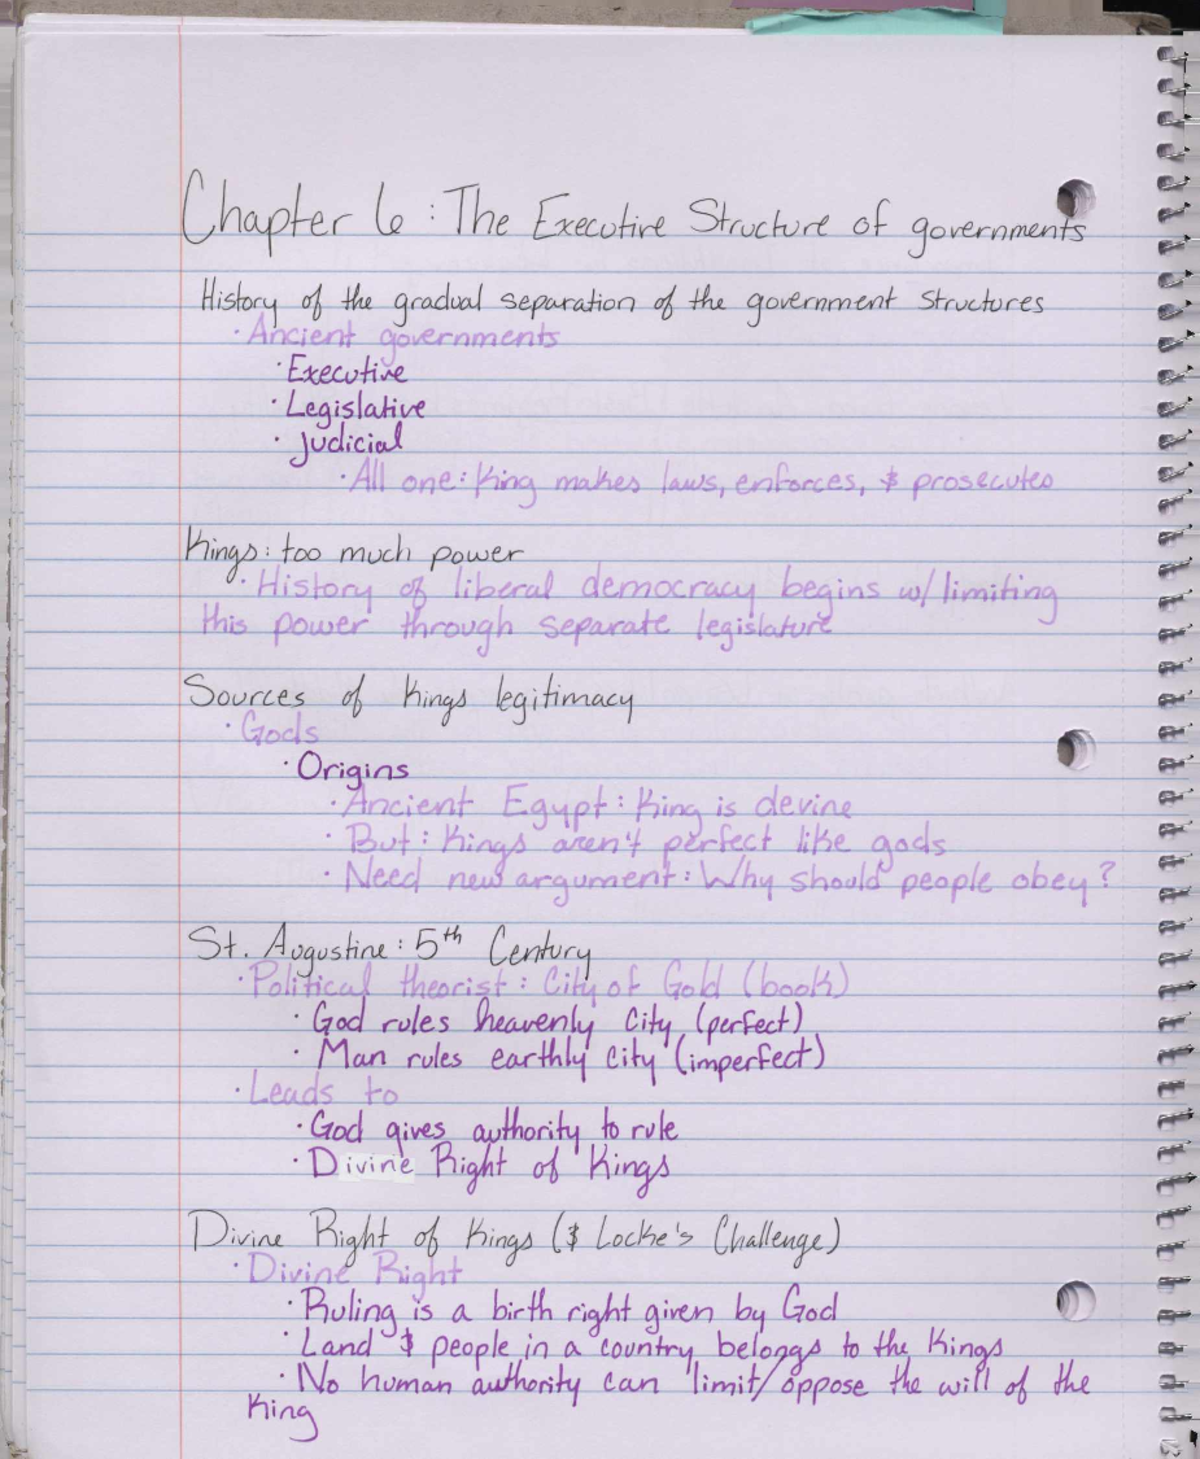 Chapter 6: The Executive Structure of governments
History of the gradual separation of the government structures
· Ancient governments
· Executive
· Legislative
· Judicial
· All one: King makes laws, enforces, & prosecutes
Kings: too much power
· History of liberal democracy begins w/ limiting
this power through separate legislature
Sources of Kings legitimacy
· Gods
· Origins
· Ancient Egypt: King is devine
· But: Kings aren't perfect like gods
· Need new argument: Why should people obey?
St. Augustine: 5th Century
· Political theorist: City of Gold (book)
· God rules heavenly city (perfect)
· Man rules earthly city (imperfect)
· Leads to
· God gives authority to rule
· Divine Right of Kings
Divine Right of Kings (& Locke's Challenge)
· Divine Right
· Ruling is a birth right given by God
· Land & people in a country belongs to the Kings
· No human authority can limit/oppose the will of the
King